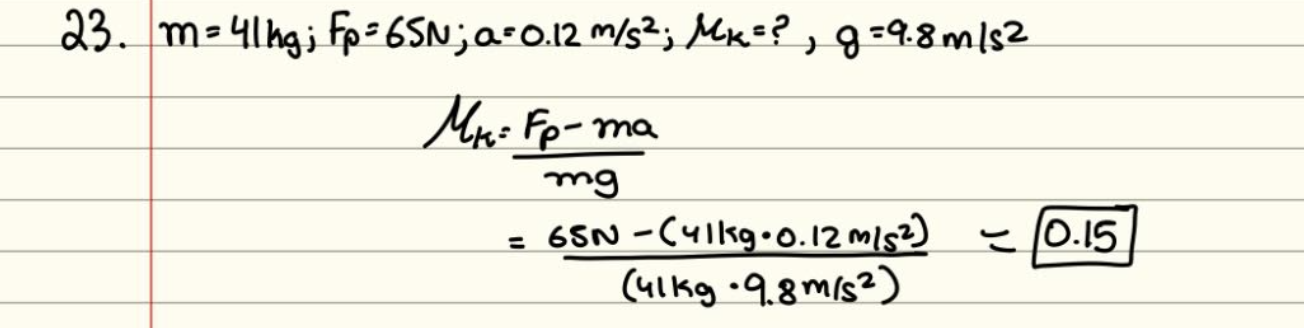 23. m = 41kg; Fp = 65N; a = 0.12 m/s²; μk = ?, g = 9.8 m/s²
μk = Fp - ma
mg
= 65N - (41kg · 0.12 m/s²) = 0.15
(41kg · 9.8 m/s²)